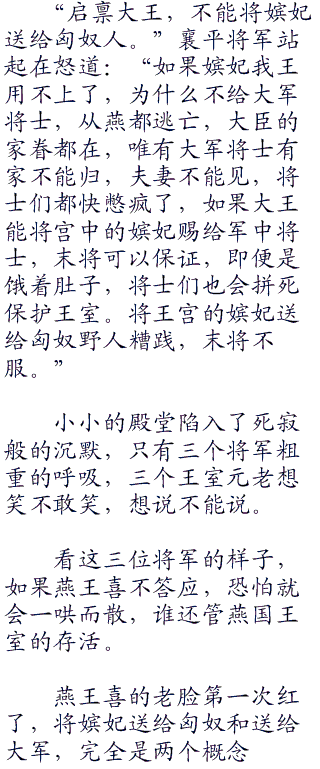 “启禀大王，不能将嫔妃
送给匈奴人。”襄平将军站
起在怒道：“如果嫔妃我王
用不上了，为什么不给大军
将士，从燕都逃亡，大臣的
家眷都在，唯有大军将士有
家不能归，夫妻不能见，将
士们都快憋疯了，如果大王
能将宫中的嫔妃赐给军中将
士，末将可以保证，即便是
饿着肚子，将士们也会拼死
保护王室。将王宫的嫔妃送
给匈奴野人糟践，末将不
服。”
小小的殿堂陷入了死寂
般的沉默，只有三个将军粗
重的呼吸，三个王室元老想
笑不敢笑，想说不能说。
看这三位将军的样子，
如果燕王喜不答应，恐怕就
会一哄而散，谁还管燕国王
室的存活。
燕王喜的老脸第一次红
了，将嫔妃送给匈奴和送给
大军，完全是两个概念